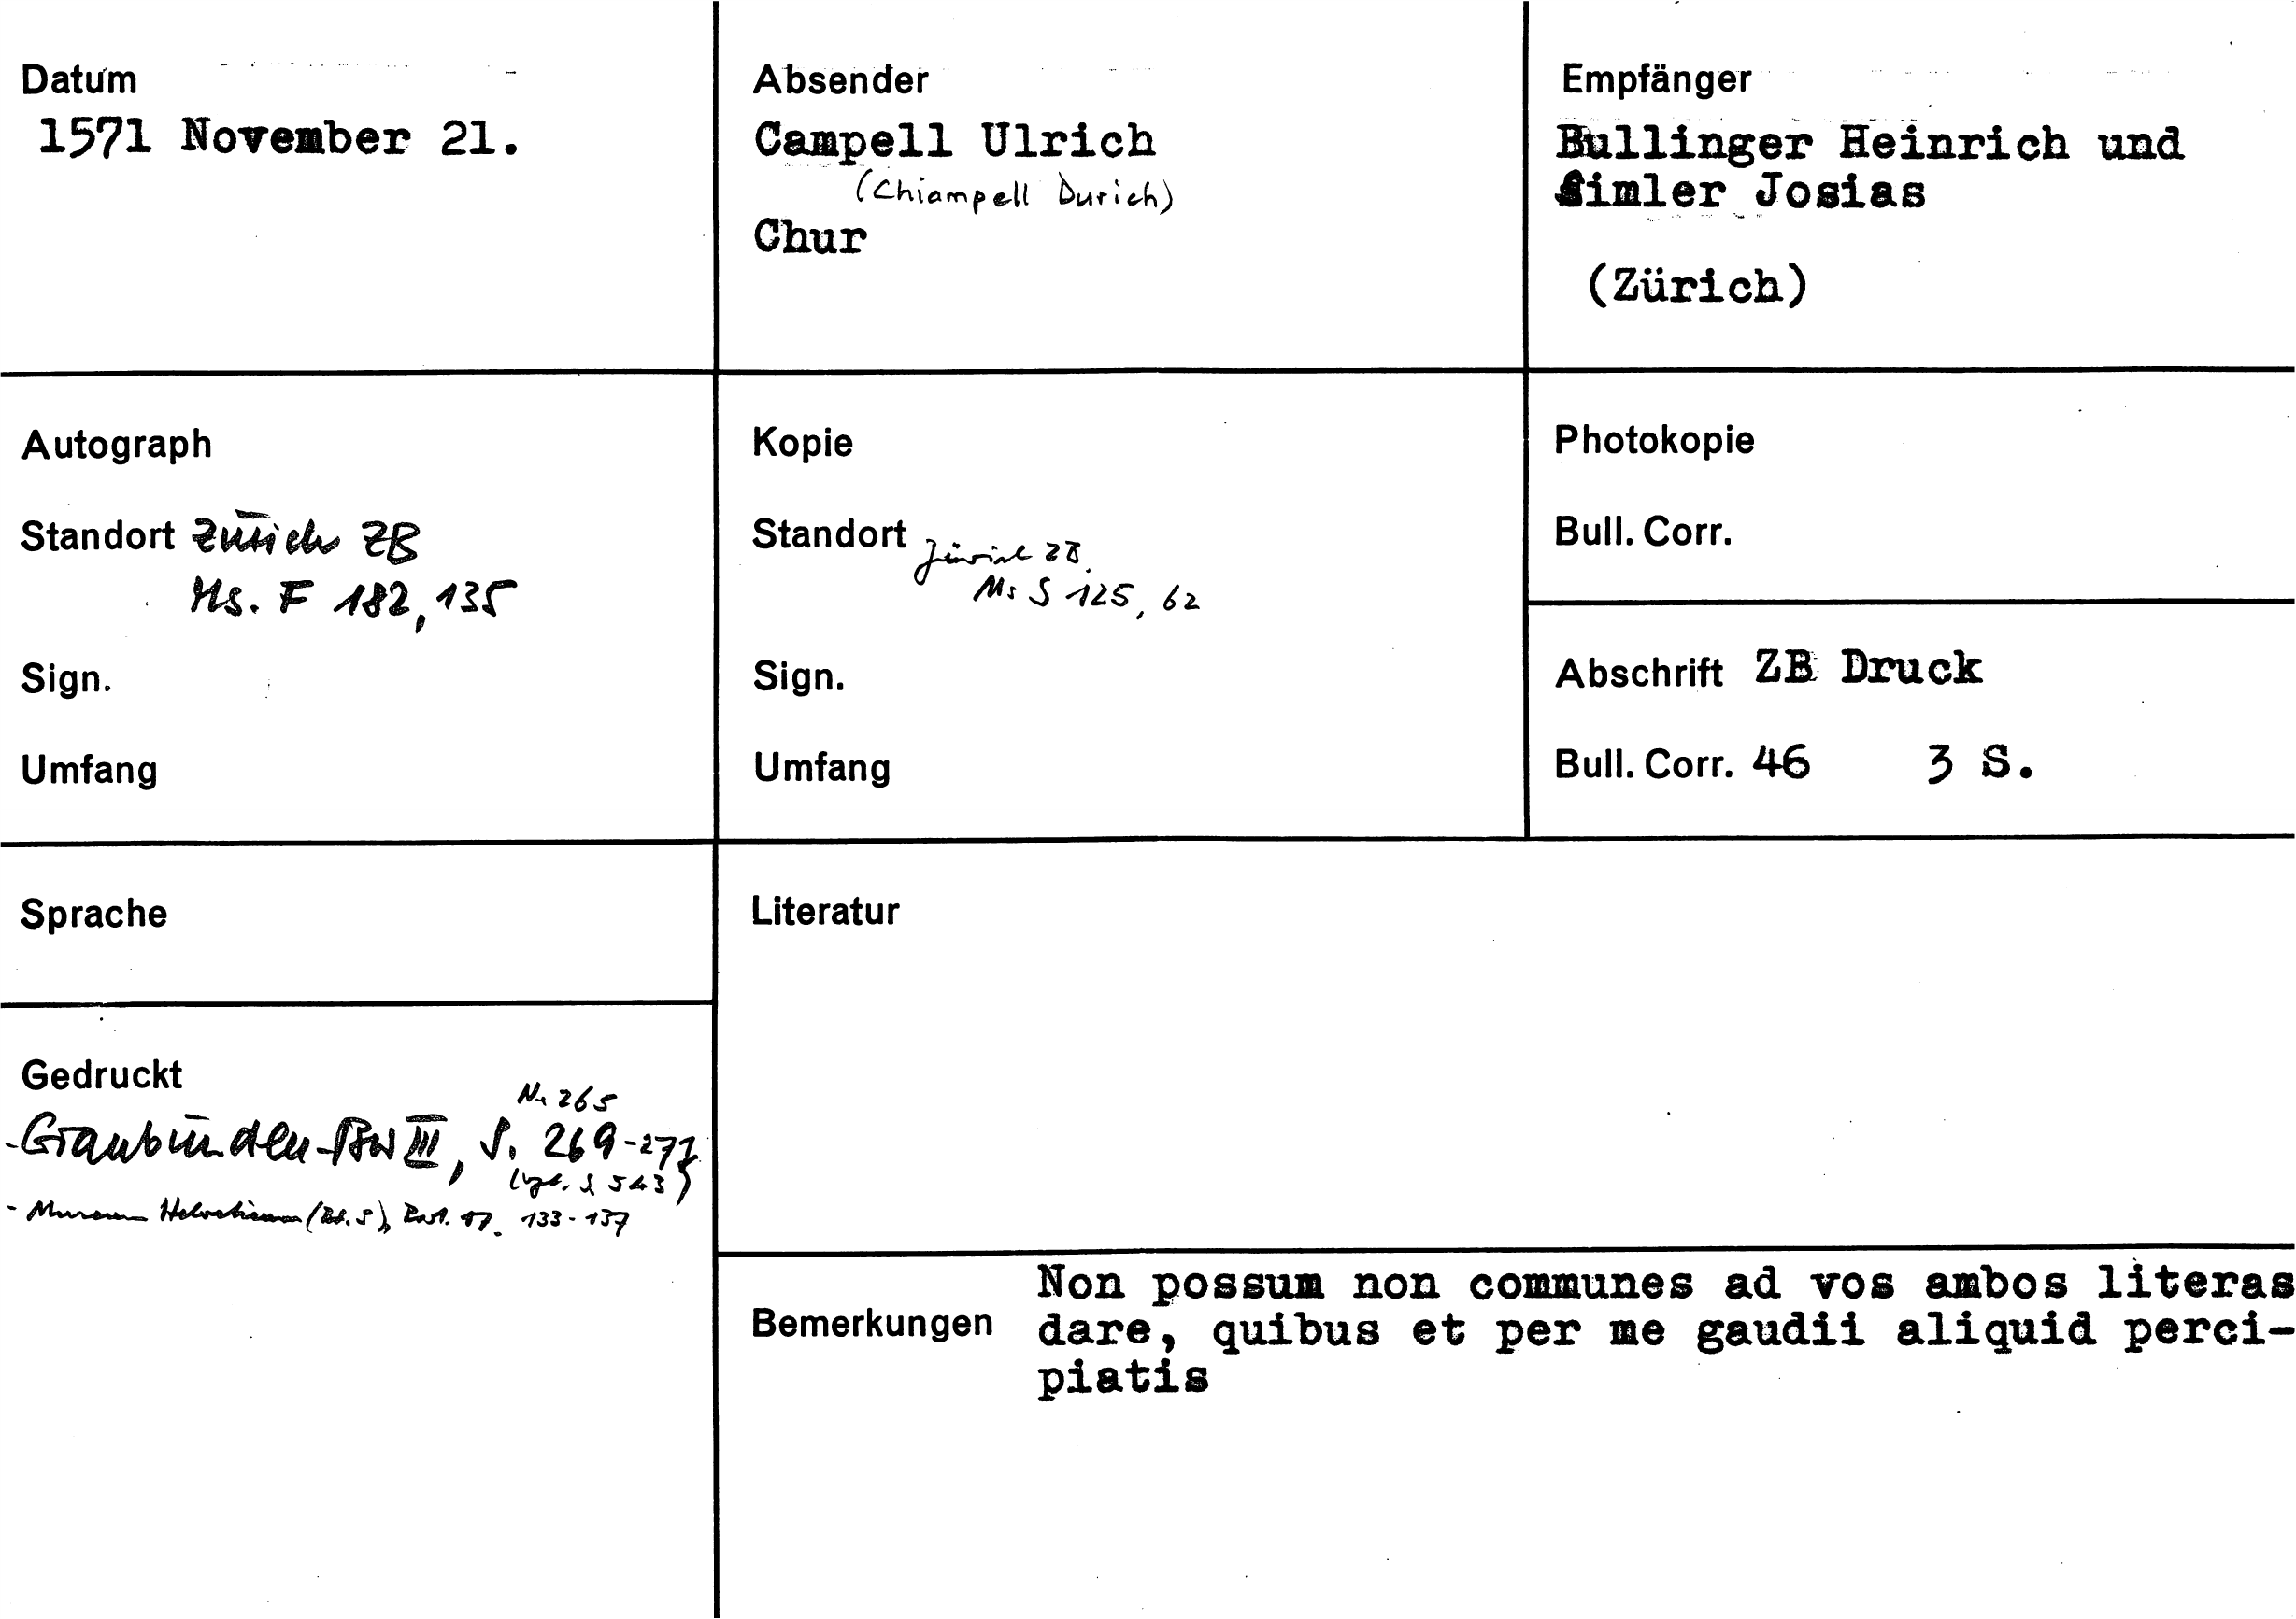 Datum
1571 November 21.
Absender
Campell Ulrich
(Chiampell Durich)
Chur
Empfänger
Bullinger Heinrich und
Simler Josias
(Zürich)
Autograph
Standort Zürich ZB
Ms. F 182, 135
Sign.
Umfang
Kopie
Standort Zürich ZB.
Ms S 125, 62
Sign.
Umfang
Photokopie
Bull. Corr.
Abschrift ZB Druck
Bull. Corr. 46 3 S.
Sprache
Literatur
Gedruckt
Nr 265
- Graubünden BW III, S. 269-271
(vgl. S 543)
- Museum Helveticum (Bd. 5), 133-137
Bemerkungen
Non possum non communes ad vos ambos literas
dare, quibus et per me gaudii aliquid perci-
piatis